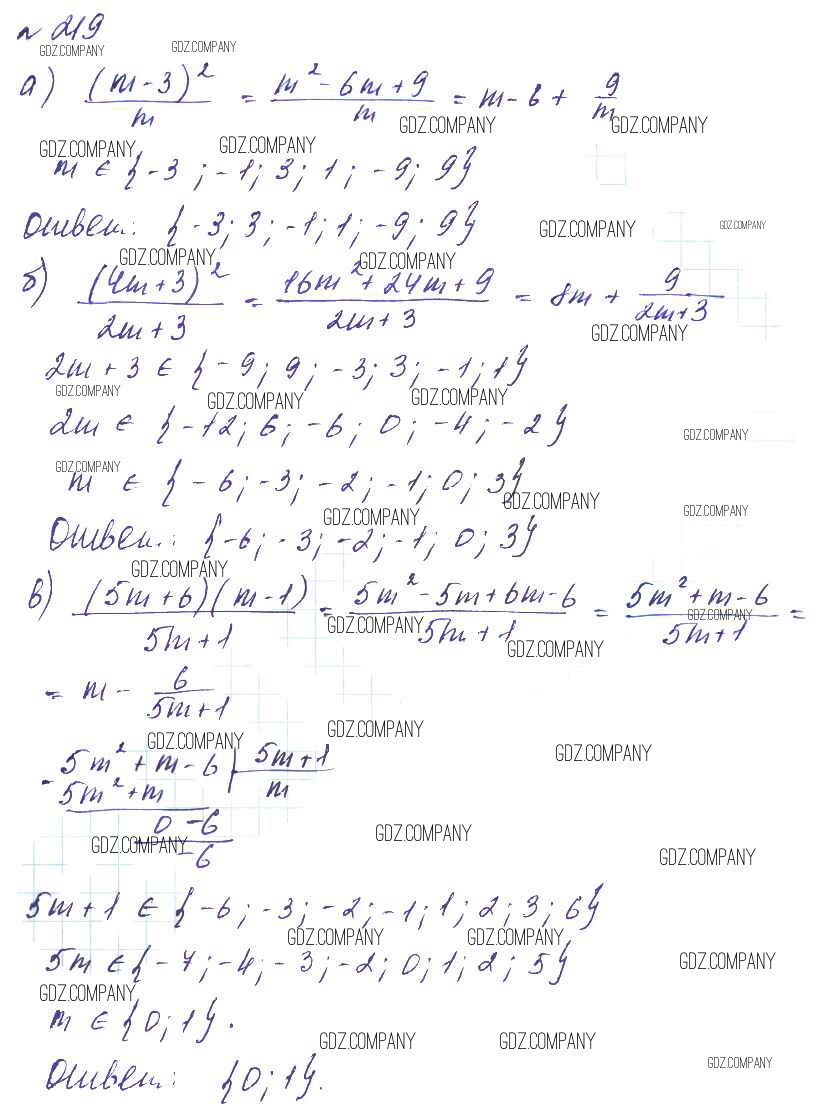 № 219
GDZ.COMPANY GDZ.COMPANY
а) (m-3)²/m = (m²-6m+9)/m = m-6+ 9/m
GDZ.COMPANY GDZ.COMPANY
GDZ.COMPANY GDZ.COMPANY
m ∈ {-3; -1; 3; 1; -9; 9}
Ответ: {-3; 3; -1; 1; -9; 9}
GDZ.COMPANY GDZ.COMPANY
GDZ.COMPANY GDZ.COMPANY
б) (4m+3)²/(2m+3) = (16m²+24m+9)/(2m+3) = 8m + 9/(2m+3)
GDZ.COMPANY
2m+3 ∈ {-9; 9; -3; 3; -1; 1}
GDZ.COMPANY GDZ.COMPANY GDZ.COMPANY
2m ∈ {-12; 6; -6; 0; -4; -2}
GDZ.COMPANY
GDZ.COMPANY
m ∈ {-6; -3; -2; -1; 0; 3}
GDZ.COMPANY GDZ.COMPANY
GDZ.COMPANY
Ответ: {-6; -3; -2; -1; 0; 3}
GDZ.COMPANY
в) (5m+6)(m-1)/(5m+1) = (5m²-5m+6m-6)/(5m+1) = (5m²+m-6)/(5m+1) =
GDZ.COMPANY GDZ.COMPANY GDZ.COMPANY
= m - 6/(5m+1)
GDZ.COMPANY
GDZ.COMPANY GDZ.COMPANY
-5m²+m-6 | 5m+1
5m²+m | m
0-6
GDZ.COMPANY GDZ.COMPANY
-6
GDZ.COMPANY
5m+1 ∈ {-6; -3; -2; -1; 1; 2; 3; 6}
GDZ.COMPANY GDZ.COMPANY
5m ∈ {-7; -4; -3; -2; 0; 1; 2; 5}
GDZ.COMPANY
GDZ.COMPANY
m ∈ {0; 1}.
GDZ.COMPANY GDZ.COMPANY
GDZ.COMPANY
Ответ: {0; 1}.